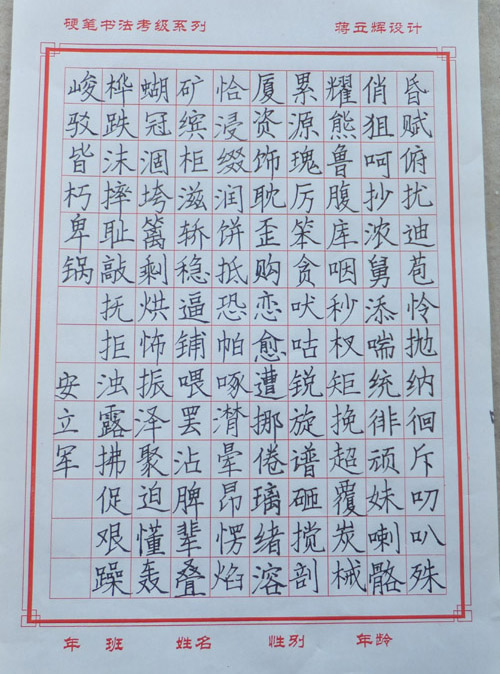 硬笔书法考级系列 蒋立辉设计
昏赋俯扰迪苞怜抛纳徊斥叨叭殊
俏狙呵抄浓舅添喘统徘顽妹喇骼
耀熊鲁腹库咽秒杈矩挽超覆炭械
累源瑰厉笨贪吠咕锐旋谱砸搅剖
厦资饰耽歪购恋愈遭挪倦璃绪溶
恰浸缀润饼抵恐帕啄潸晕昂愣焰
矿缤柜滋轿稳逼铺喂罢沾脾辈叠
蝴冠涸垮篱剩烘怖振泽聚迫懂轰
桦跌沫摔耻敲抚拒浊露拂促艰躁
峻驳皆朽卑锅
安立军
年 班 姓名 性别 年龄